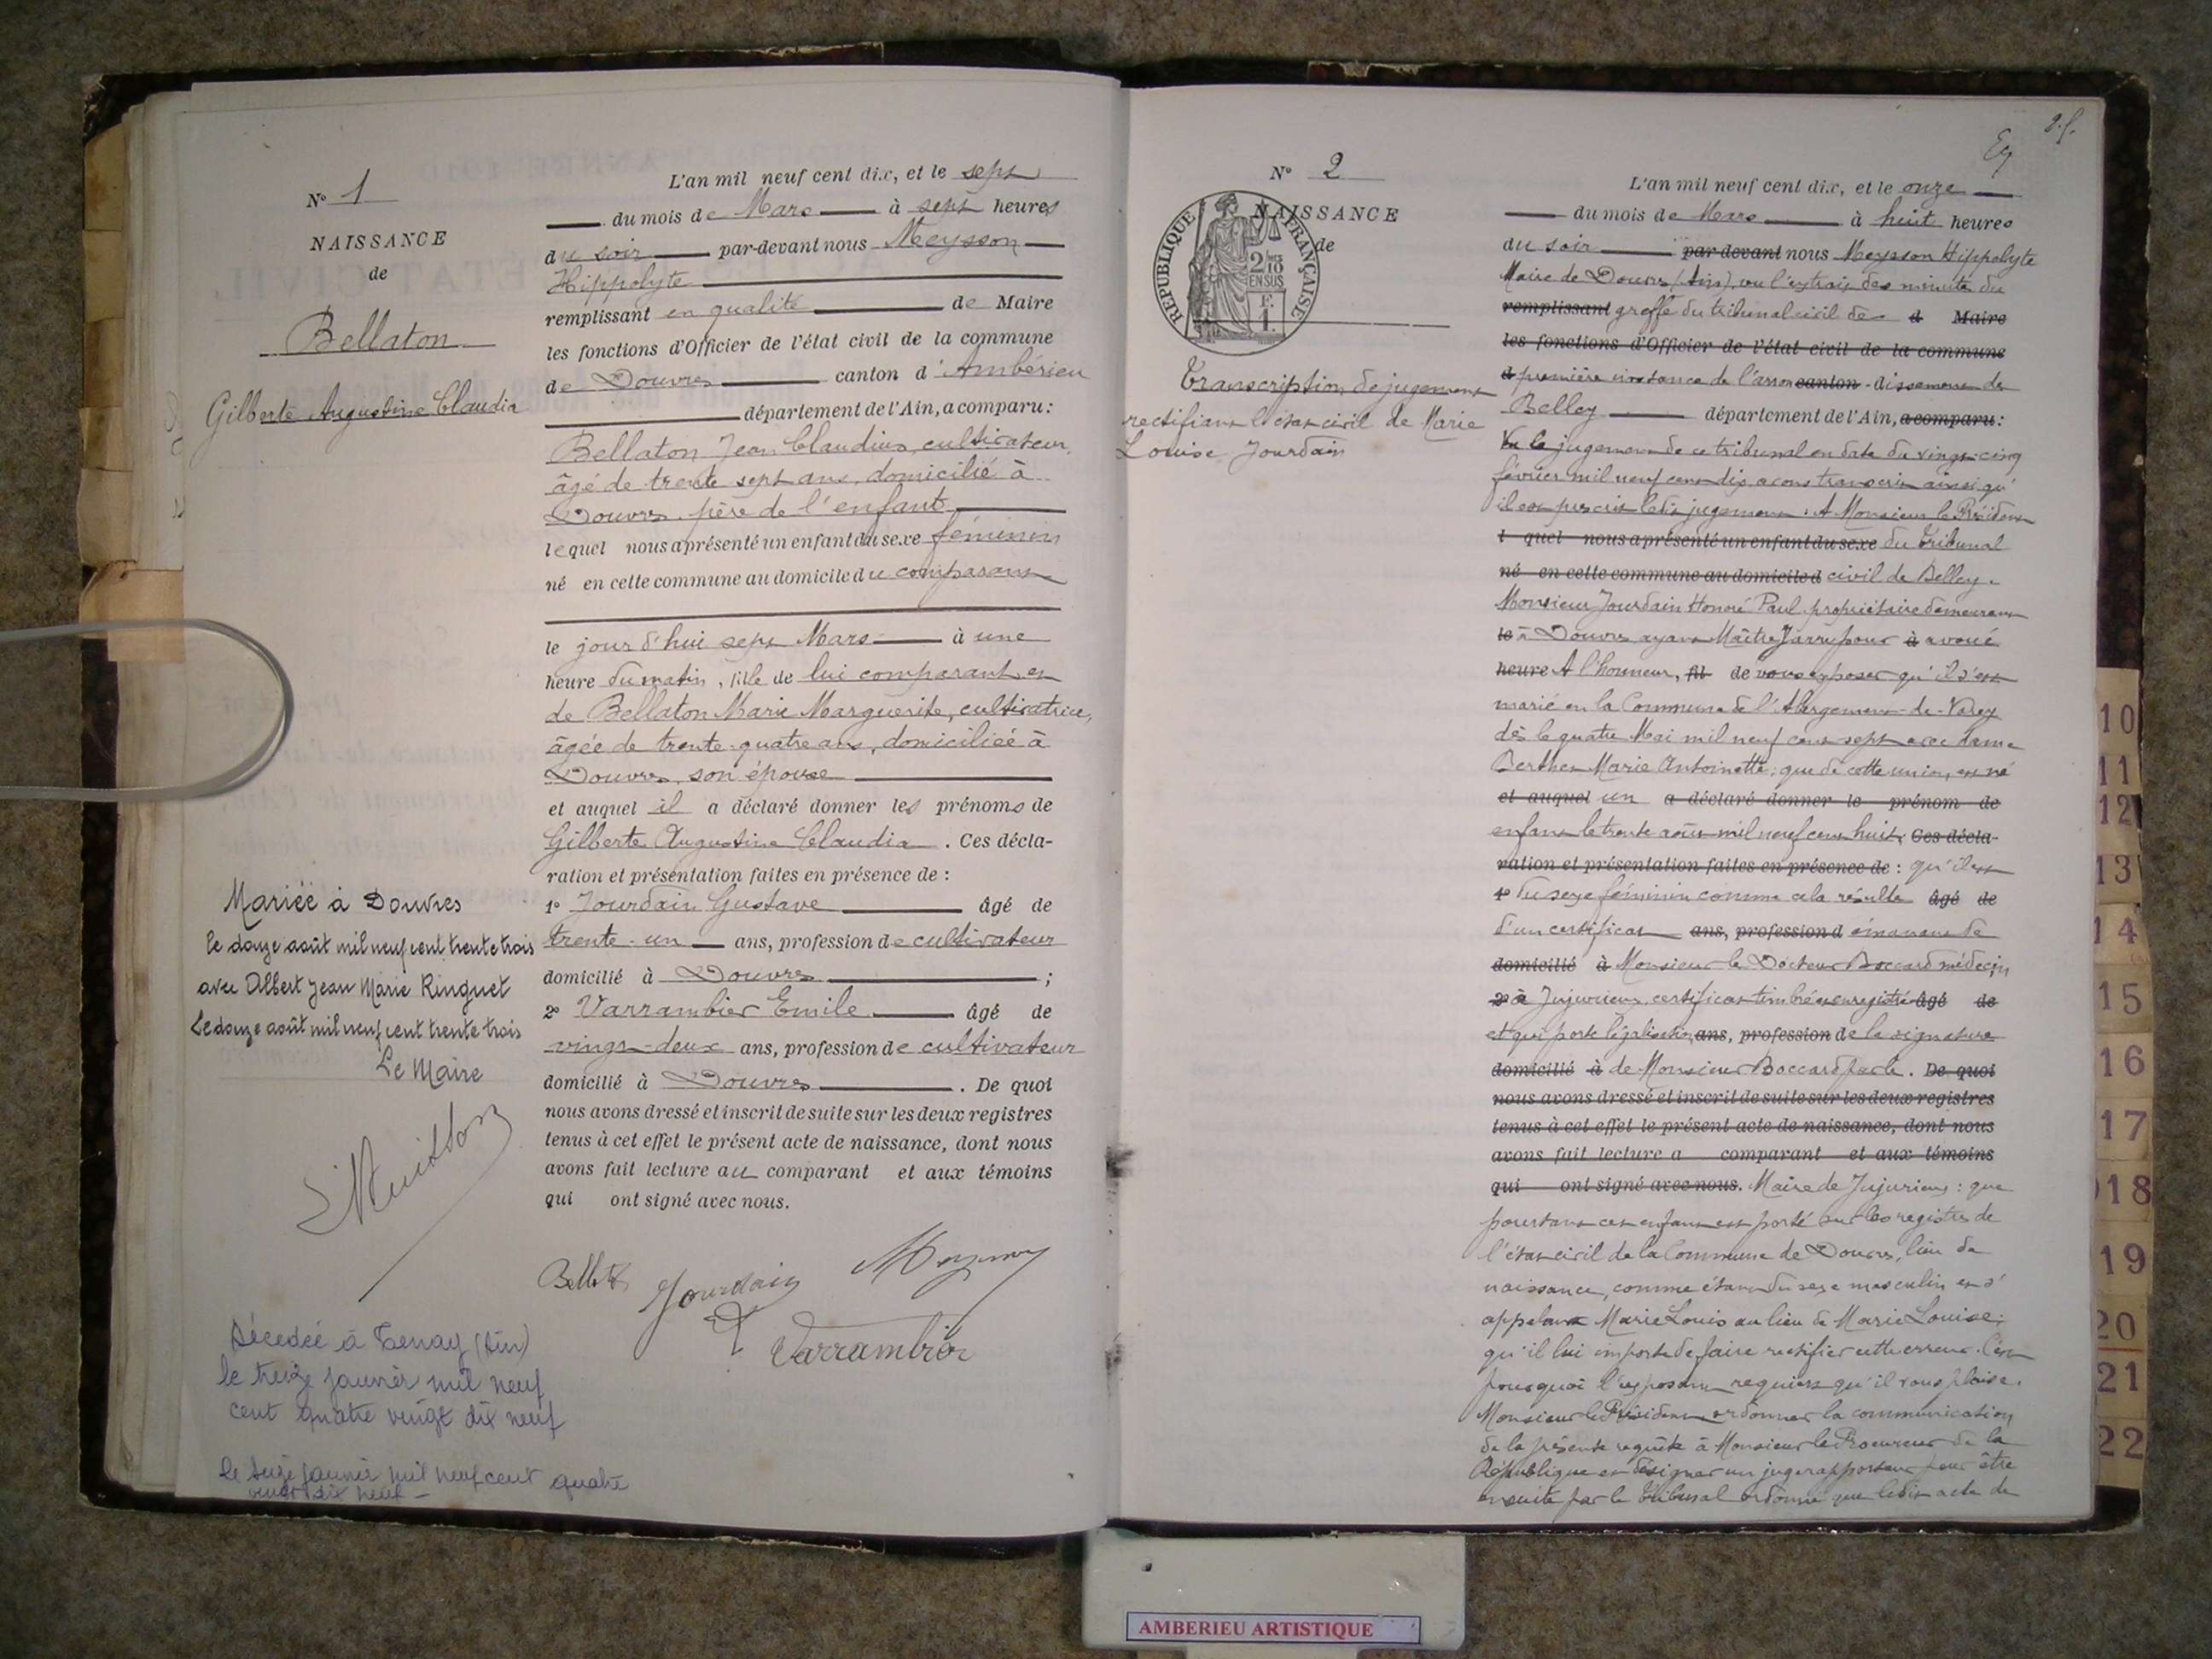 N° 1
NAISSANCE
de
Bellaton
Gilberte Augustine Claudia
L'an mil neuf cent dix, et le sept
du mois de Mars à sept heures
du soir par-devant nous Meysson
Hippolyte
remplissant en qualité de Maire
les fonctions d'Officier de l'état civil de la commune
de Douvres canton d'Ambérieu
département de l'Ain, a comparu :
Bellaton Jean Claudius, cultivateur,
âgé de trente sept ans, domicilié à
Douvres, père de l'enfant
lequel nous a présenté un enfant du sexe féminin
né en cette commune au domicile du comparant
le jour d'hui sept Mars à une
heure du matin, fille de lui comparant et
de Bellaton Marie Marguerite, cultivatrice,
âgée de trente-quatre ans, domiciliée à
Douvres, son épouse
et auquel il a déclaré donner les prénoms de
Gilberte Augustine Claudia. Ces décla-
ration et présentation faites en présence de :
1° Jourdain Gustave âgé de
trente-un ans, profession de cultivateur
domicilié à Douvres ;
2° Varrambier Emile âgé de
vingt-deux ans, profession de cultivateur
domicilié à Douvres. De quoi
nous avons dressé et inscrit de suite sur les deux registres
tenus à cet effet le présent acte de naissance, dont nous
avons fait lecture au comparant et aux témoins
qui ont signé avec nous.
Jourdain
Varrambier
Mariée à Douvres
le douze août mil neuf cent trente trois
avec Albert Jean Marie Ringuet
Le douze août mil neuf cent trente trois
Le Maire
Décédée à Tenay (Ain)
le treize janvier mil neuf
cent quatre vingt dix neuf
le seize janvier mil neuf cent quatre
vingt dix neuf
N° 2
NAISSANCE
de
REPUBLIQUE FRANÇAISE
2/10
EN SUS
F.
1.
Transcription de jugement
rectifiant l'état civil de Marie
Louise Jourdain
L'an mil neuf cent dix, et le onze
du mois de Mars à huit heures
du soir par-devant nous Meysson Hippolyte
Maire de Douvres (Ain), vu l'extrait des minutes du
remplissant greffe du tribunal civil de d Maire
les fonctions d'Officier de l'état civil de la commune
d première instance de l'arron canton -dissement de
Belley département de l'Ain, a comparu :
Vu le jugement de ce tribunal en date du vingt-cinq
février mil neuf cent dix avons transcrit ainsi qu'
il est prescrit ledit jugement. A Monsieur le Président
l quel nous a présenté un enfant du sexe du Tribunal
né en cette commune au domicile d civil de Belley.
Monsieur Jourdain Honoré Paul propriétaire demeurant
le à Douvres ayant Maître Jarry pour à avoué
heure A l'honneur, fil de vous exposer qu'il s'est
marié en la Commune de l'Abergement-de-Varey
dès le quatre Mai mil neuf cent sept avec dame
Berthet Marie Antoinette ; que de cette union, est né
et auquel un a déclaré donner le prénom de
enfant le trente août mil neuf cent huit ; Ces décla-
ration et présentation faites en présence de : qu'il est
1° du sexe féminin comme cela résulte âgé de
d'un certificat ans, profession d émanant de
domicilié à Monsieur le Docteur Boccard médecin
2° à Jujurieux, certificat timbré et enregistré âgé de
et qui porte légalisation ans, profession de la signature
domicilié à de Monsieur Boccard par le. De quoi
nous avons dressé et inscrit de suite sur les deux registres
tenus à cet effet le présent acte de naissance, dont nous
avons fait lecture a comparant et aux témoins
qui ont signé avec nous. Maire de Jujurieux : que
pourtant cet enfant est porté sur les registres de
l'état civil de la Commune de Douvres, lieu de
naissance, comme étant du sexe masculin et s'
appelant Marie Louis au lieu de Marie Louise ;
qu'il lui importe de faire rectifier cette erreur. C'est
pourquoi l'exposant requiert qu'il vous plaise.
Monsieur le Président, ordonner la communication
de la présente requête à Monsieur le Procureur de la
République et désigner un juge rapporteur pour être
ensuite par le Tribunal ordonné que ledit acte de
10
11
12
13
14
15
16
17
18
19
20
21
22
AMBERIEU ARTISTIQUE